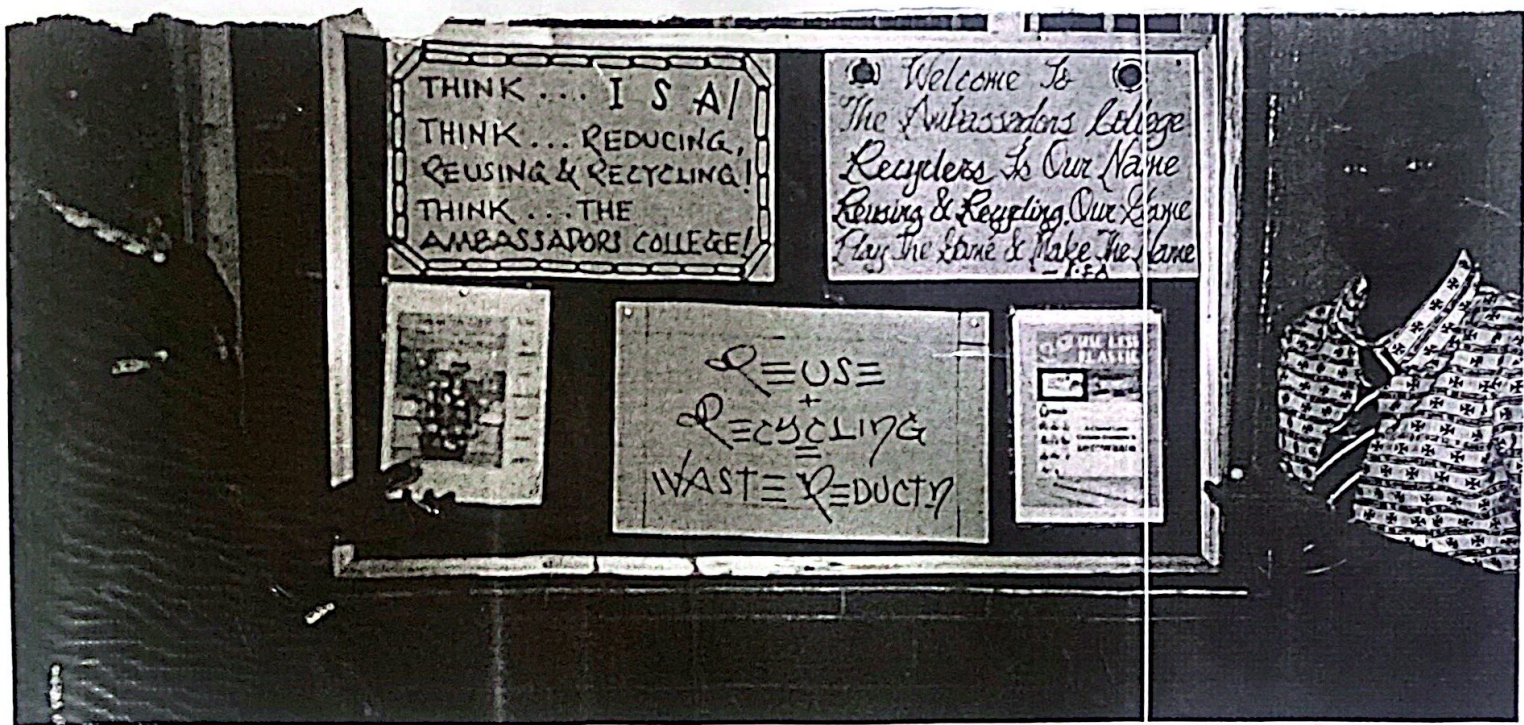 THINK ... I S A!
THINK ... REDUCING,
REUSING & RECYCLING!
THINK ... THE
AMBASSADORS COLLEGE!
Welcome To
The Ambassadors College
Recyclers Is Our Name
Reusing & Recycling Our Game
Play The Game & Make The Name
REUSE
+
RECYCLING
=
WASTE REDUCTN
USE LESS
PLASTIC